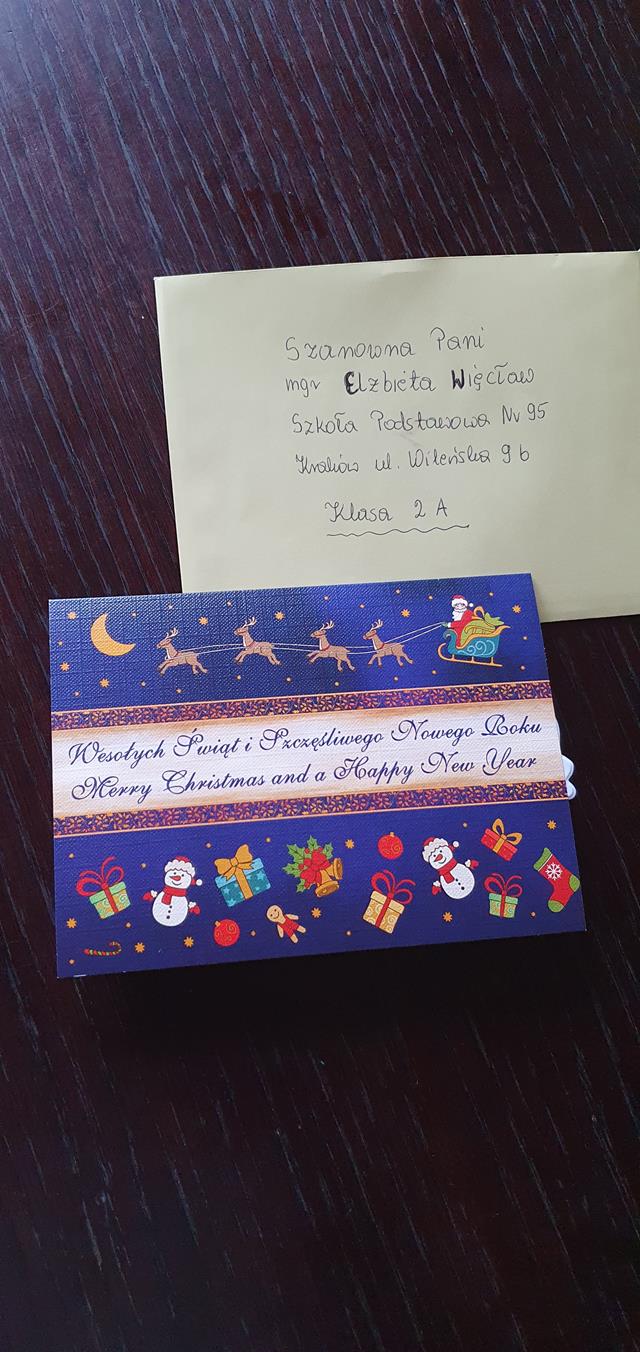 Szanowna Pani
mgr Elżbieta Więcław
Szkoła Podstawowa Nr 95
Kraków ul. Wileńska 9b
Klasa 2 A
Wesołych Świąt i Szczęśliwego Nowego Roku
Merry Christmas and a Happy New Year